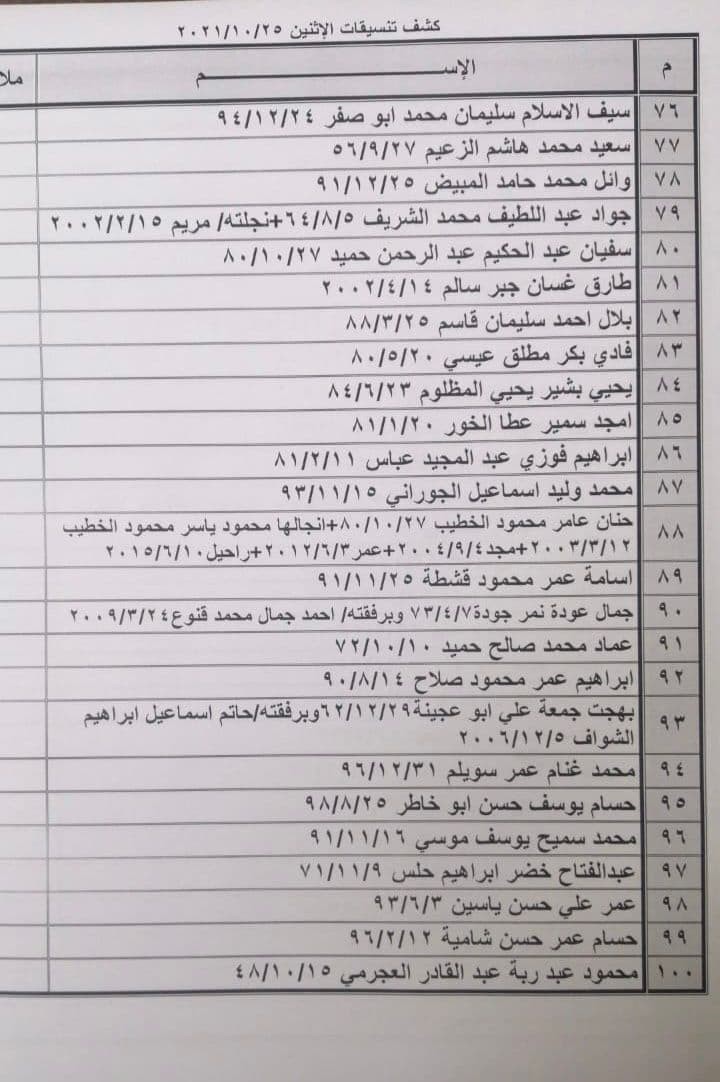 كشف تنسيقات الإثنين ٢٠٢١/١٠/٢٥
م الإســـــــــــــــم ملا
٧٦ سيف الاسلام سليمان محمد ابو صفر ٩٤/١٢/٢٤
٧٧ سعيد محمد هاشم الزعيم ٥٦/٩/٢٧
٧٨ وائل محمد حامد المبيض ٩١/١٢/٢٥
٧٩ جواد عبد اللطيف محمد الشريف ٦٤/٨/٥+نجلته/ مريم ٢٠٠٢/٢/١٥
٨٠ سفيان عبد الحكيم عبد الرحمن حميد ٨٠/١٠/٢٧
٨١ طارق غسان جبر سالم ٢٠٠٢/٤/١٤
٨٢ بلال احمد سليمان قاسم ٨٨/٣/٢٥
٨٣ فادي بكر مطلق عيسي ٨٠/٥/٢٠
٨٤ يحيي بشير يحيي المظلوم ٨٤/٦/٢٣
٨٥ امجد سمير عطا الخور ٨١/١/٢٠
٨٦ ابراهيم فوزي عبد المجيد عباس ٨١/٢/١١
٨٧ محمد وليد اسماعيل الجوراني ٩٣/١١/١٥
٨٨ حنان عامر محمود الخطيب ٨٠/١٠/٢٧+انجالها محمود ياسر محمود الخطيب
٢٠٠٣/٣/١٢+مجد٢٠٠٤/٩/٤+عمر٢٠١٢/٦/٣+راحيل٢٠١٥/٦/١٠
٨٩ اسامة عمر محمود قشطة ٩١/١١/٢٥
٩٠ جمال عودة نمر جودة٧٣/٤/٧ وبرفقته/ احمد جمال محمد قنوع٢٠٠٩/٣/٢٤
٩١ عماد محمد صالح حميد ٧٢/١٠/١٠
٩٢ ابراهيم عمر محمود صلاح ٩٠/٨/١٤
٩٣ بهجت جمعة علي ابو عجينة٦٢/١٢/٢٩وبرفقته/حاتم اسماعيل ابراهيم
الشواف ٢٠٠٦/١٢/٥
٩٤ محمد غنام عمر سويلم ٩٦/١٢/٣١
٩٥ حسام يوسف حسن ابو خاطر ٩٨/٨/٢٥
٩٦ محمد سميح يوسف موسي ٩١/١١/١٦
٩٧ عبدالفتاح خضر ابراهيم حلس ٧١/١١/٩
٩٨ عمر علي حسن ياسين ٩٣/٦/٣
٩٩ حسام عمر حسن شامية ٩٦/٢/١٢
١٠٠ محمود عبد ربة عبد القادر العجرمي ٤٨/١٠/١٥